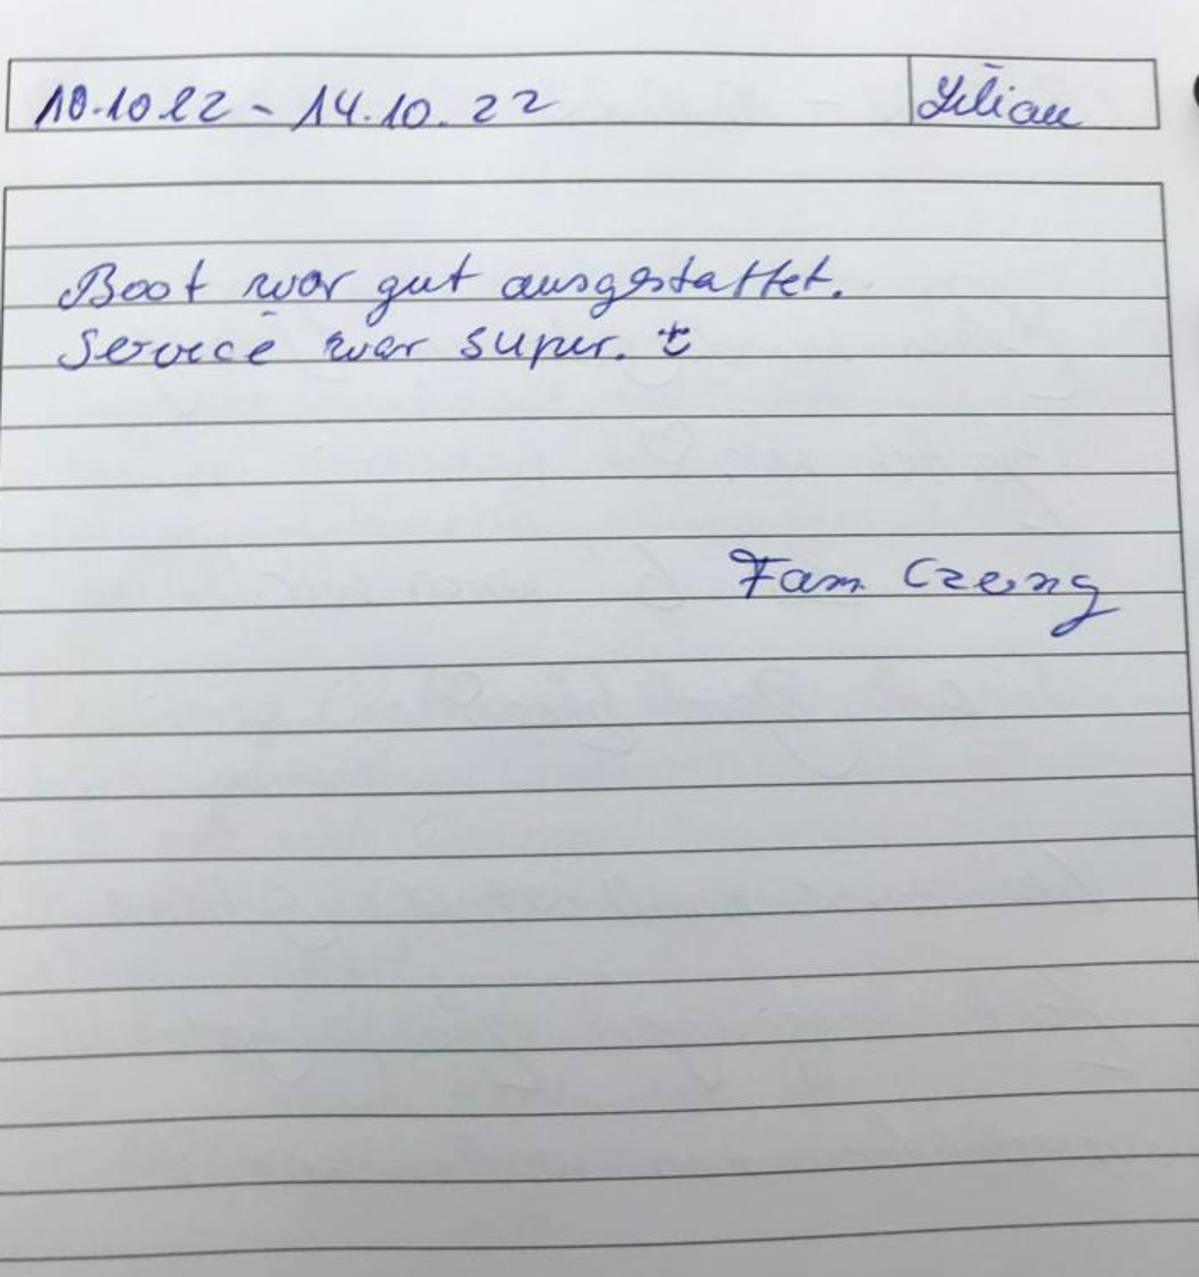 10.10.22 - 14.10.22 Lilian
Boot war gut ausgestattet.
Service war super.
Fam. Czerny